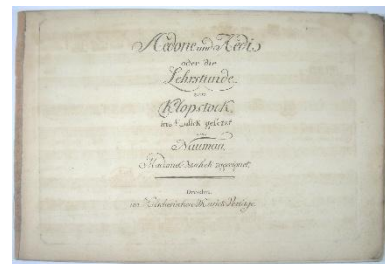 Aedone und Aëdi
oder die
Lehrstunde
von
Klopstock,
in Musick gesetzt
von
Nauman,
Madame zugeeignet,
Dresden,
im Hilscherischen Musick Verlage.